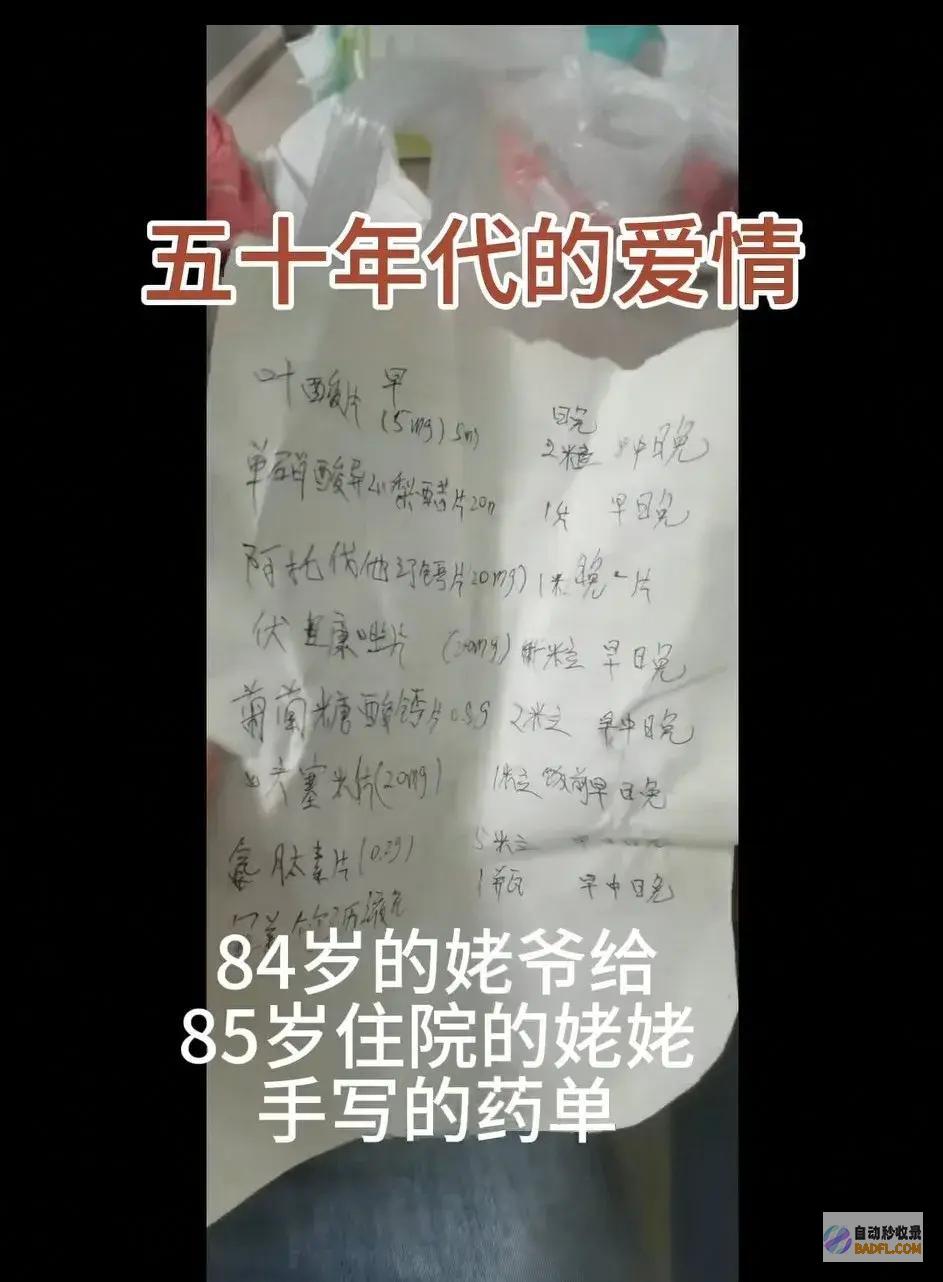 五十年代的爱情
叶酸片 早
(5mg) 5m 晚
2粒 早中晚
单硝酸异山梨醋片20m 1片 早晚
阿托伐他汀钙片20mg) 1粒 晚一片
伏立康唑片 (200mg) 粒 早晚
葡萄糖酸钙片0.5g 2粒 早中晚
塞米片(20mg) 1粒 饭前早晚
氨肽素片(0.2g) 5粒
1瓶 早中晚
84岁的姥爷给
85岁住院的姥姥
手写的药单
自动秒收录
BADFL.COM